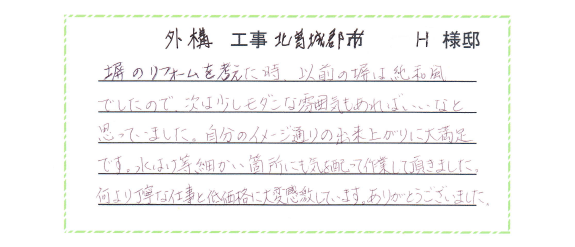 外構 工事 北葛城郡市 H 様邸
塀のリフォームを考えた時、以前の塀は純和風
でしたので、次は少しモダンな雰囲気もあればいいなと
思っていました。自分のイメージ通りの出来上がりに大満足
です。水はけ等細かい箇所にも気を配って作業して頂きました。
何より丁寧な仕事と低価格に大変感激しています。ありがとうございました。